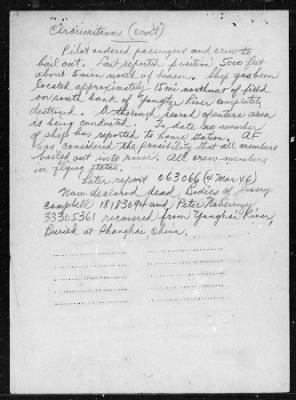 Circumstances (cont)
Pilot ordered passengers and crew to
bail out. Last reported position 5000 feet
about 5 min north of beacon. Ship has been
located approximately 15 mi northwest of field
on south bank of Yangtze River completely
destroyed. A thorough search of entire area
is being conducted. To date no member
of ship has reported to home station. AF
has considered the possibility that all members
bailed out into river. All crew members
on flying status.
Later report 063066 (4 Mar 46)
Now declared dead. Bodies of
Campbell 18183094 and Peter
33305361 recovered from River,
Buried at Shanghai, China.